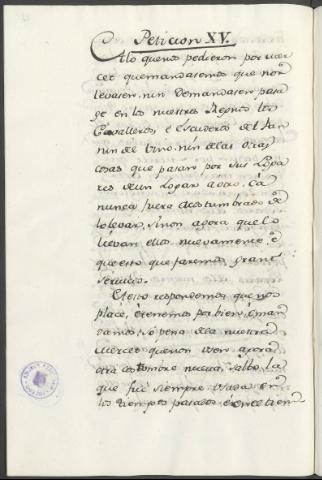 Peticion XV.
Alo quenos pedieron por mer
cet quemandasemos que non
levasen, nin demandasen peaja
ge en los nuestros Regnos los
Cavalleros, é Escuderos del Pan
nin del Vino, nin delas otras
cosas que pasan por sus Loga
res de un Logar a otro. Ca
nunca fuera acostumbrado de
lo levar, sinon agora que lo
lievan ellos nuevamente, é
que esto que faremos grant
servicio.
A esto respondemos que nos
place, é tenemos por bien, é man
damos, só pena dela nuestra
merced que non usen agora
otra costumbre nueva, salbo la
que fué siempre usada en
los tiempos pasados é en el tiem